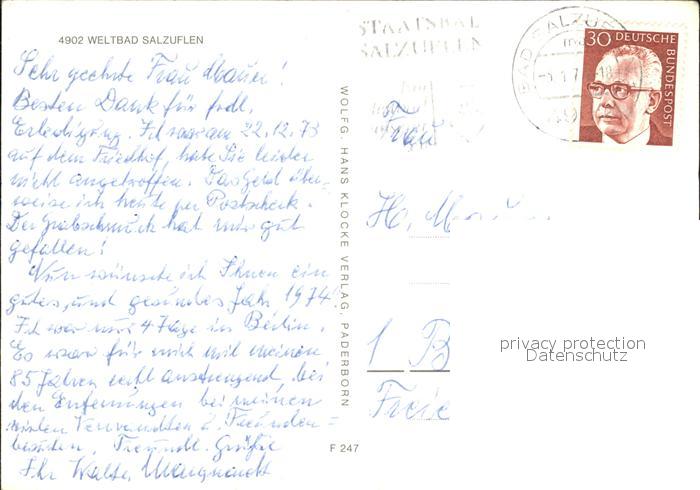 4902 WELTBAD SALZUFLEN
Sehr geehrte Frau
Besten Dank für frdl.
Erledigung. Ich war am 22.12.73
auf dem Friedhof, habe Sie leider
nicht angetroffen. Das Geld über-
weise ich heute per Postscheck.
Der Grabschmuck hat mir gut
gefallen!
Nun wünsche ich Ihnen ein
gutes, und gesundes Jahr 1974!
Ich war nur 4 Tage in Berlin.
Es war für mich mit meinen
85 Jahren recht anstrengend, bei
den Entfernungen bei meinen
vielen Verwandten u. Freunden=
besuchen. Freundl. Grüße
Ihr Walter
WOLFG. HANS KLOCKE VERLAG, PADERBORN
F 247
STAATSBAD
SALZUFLEN
BAD SALZUF
30 DEUTSCHE
BUNDESPOST
Frau
H.
1 B
privacy protection
Datenschutz